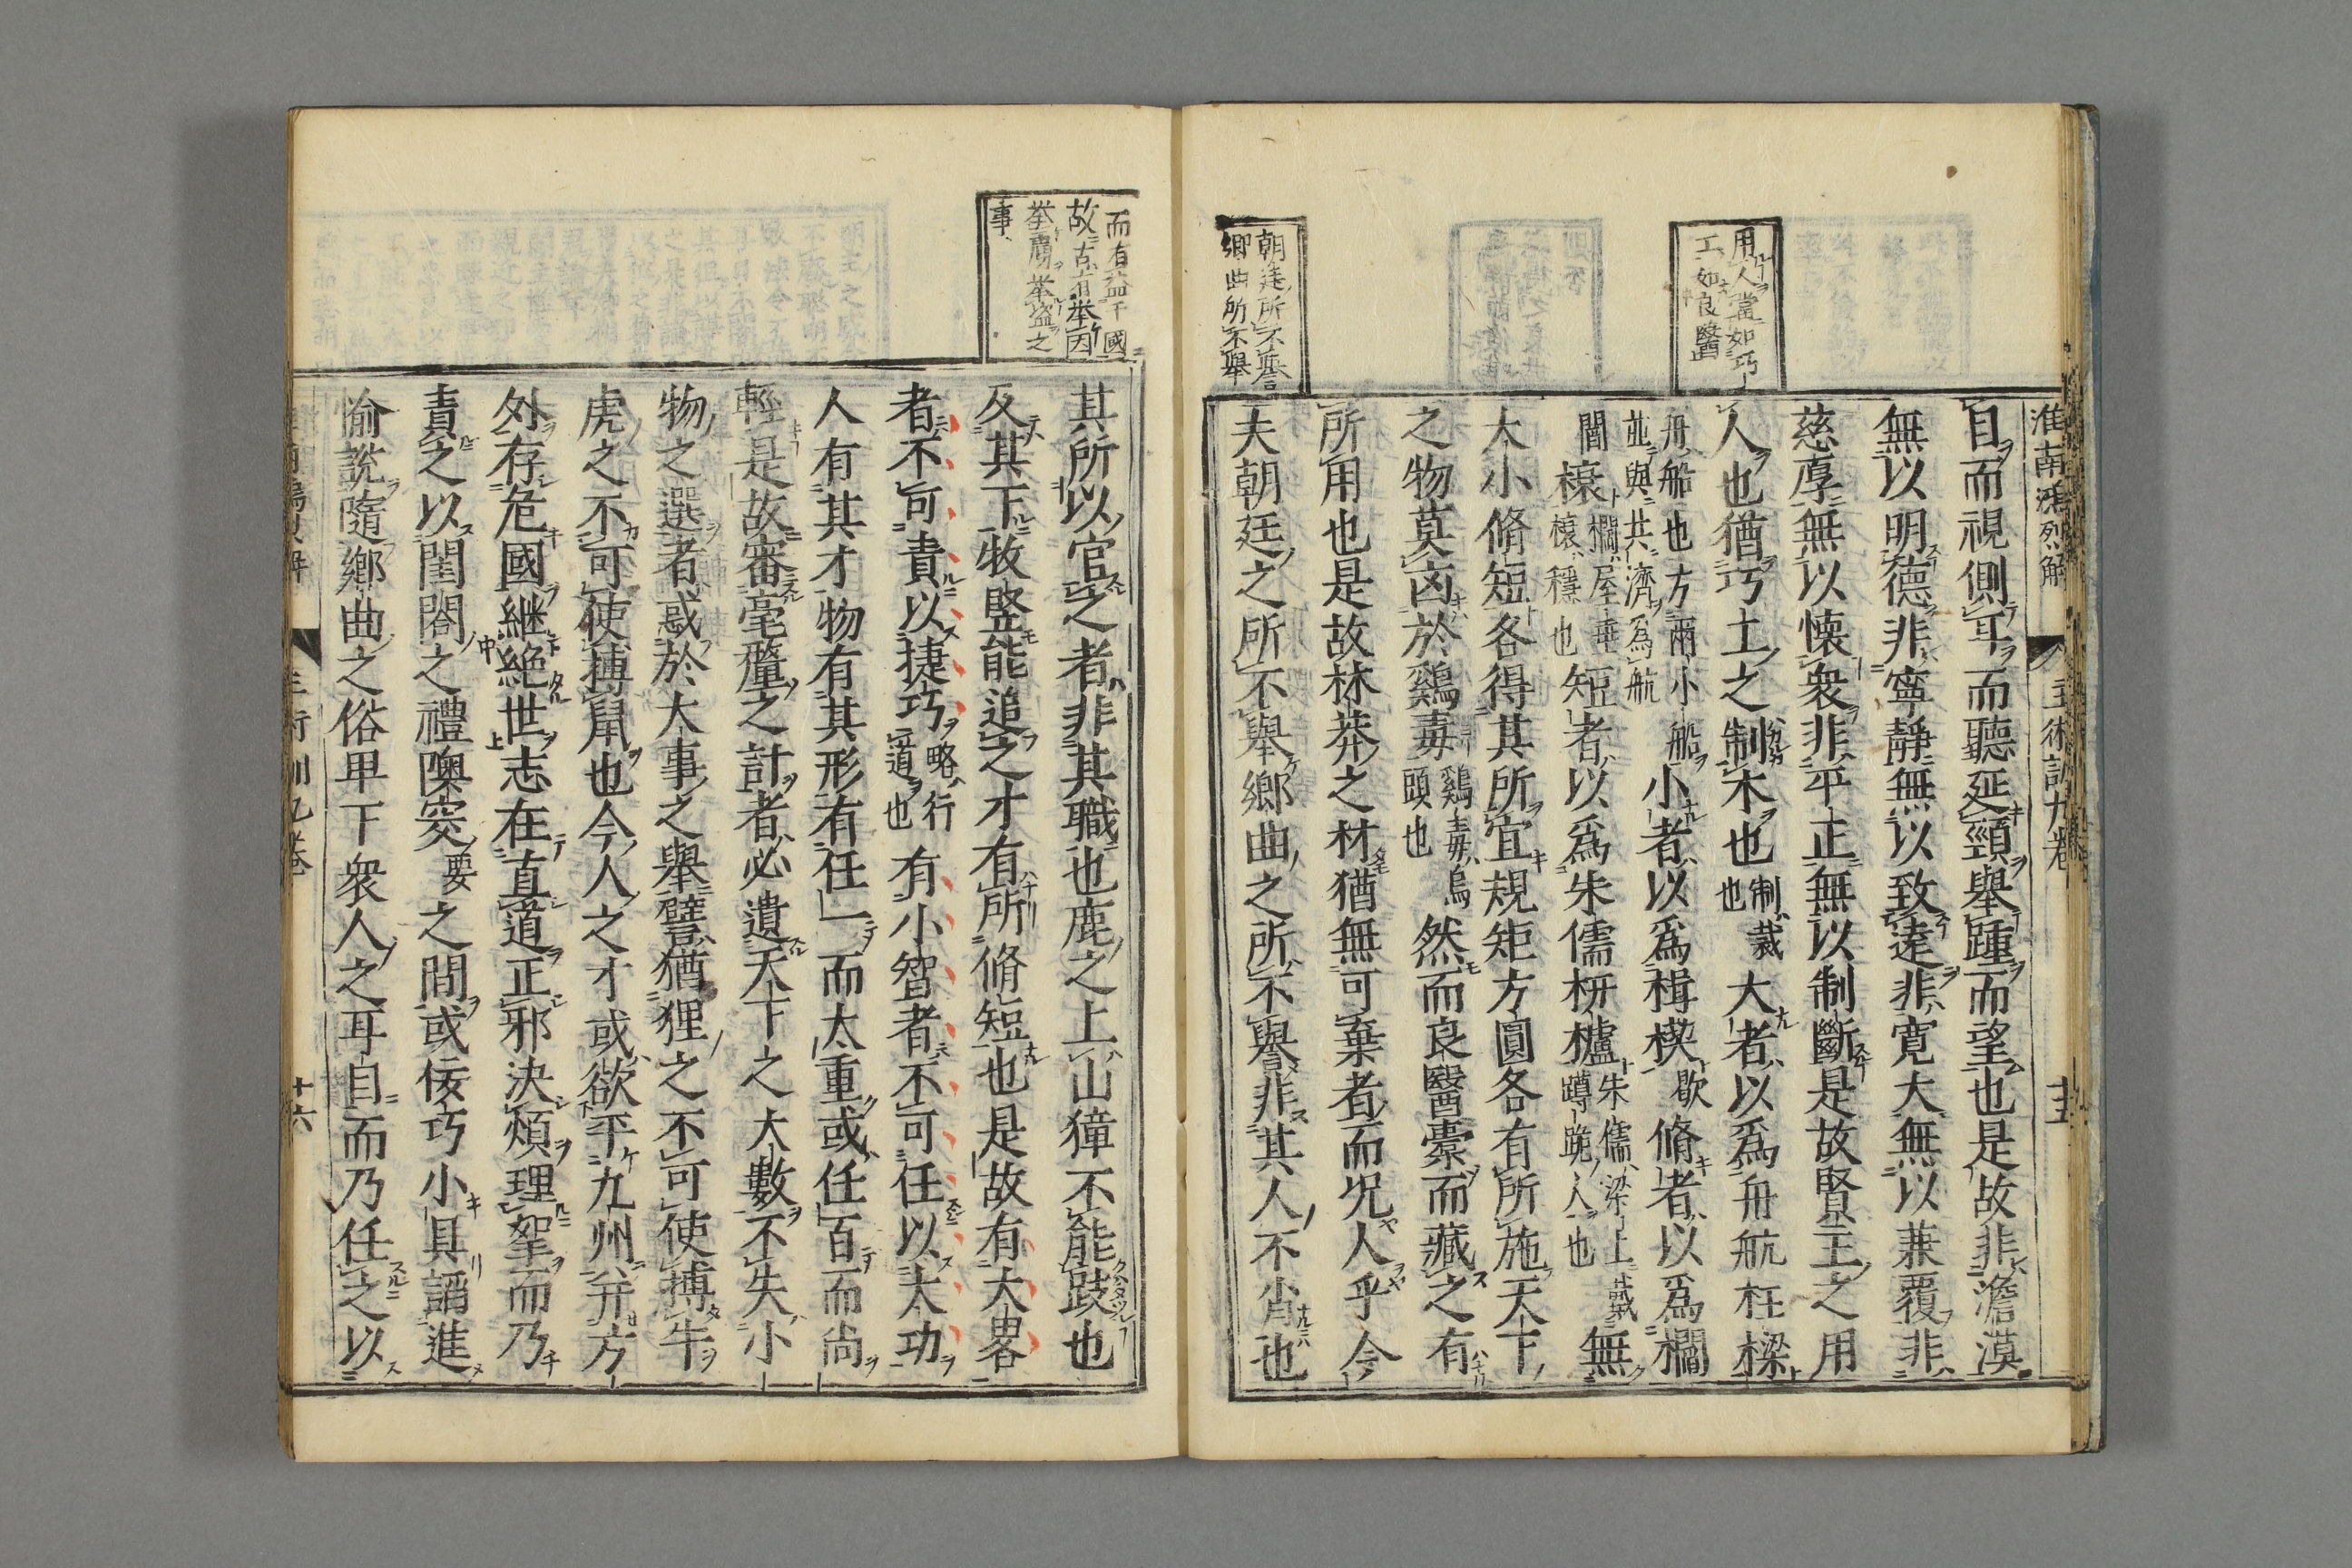 淮南鴻烈解 主術訓九卷 十五
用人當如巧
工如良醫
朝廷所不譽
鄉曲所不舉
目而視側耳而聽延頸舉踵而望也是故非澹漠
無以明德非寧靜無以致遠非寬大無以兼覆非
慈厚無以懷衆非平正無以制斷是故賢主之用
人也猶巧士之制木也制裁也大者以爲舟航柱樑
舟船也方兩小船
並與共濟爲航小者以爲楫楔歇脩者以爲櫩
閻榱櫩屋垂
榱穩也短者以爲朱儒枅櫨朱儒梁上戴
蹲跪人也無
大小脩短各得其所宜規矩方圓各有所施天下
之物莫凶於鷄毒鷄毒烏
頭也然而良醫橐而藏之有
所用也是故林莽之材猶無可棄者而况人乎今
夫朝廷之所不舉鄉曲之所不譽非其人不肖也
而有益于國
故古有举因
举虜举盜之
事
其所以官之者非其職也鹿之上山獐不能跂也
及其下牧豎能追之才有所脩短也是故有大畧
者不可責以捷巧略行
道也有小智者不可任以大功
人有其才物有其形有任一而太重或任百而尚
輕是故審毫釐之計者必遺天下之大數不失小
物之選者惑於大事之舉譬猶狸之不可使搏牛
虎之不可使搏鼠也今人之才或欲平九州并方
外存危國継絶世志在直道正邪決煩理挐而乃
責之以閨閤之禮隩窔要之間或佞巧小具諂進
愉說隨鄉曲之俗卑下衆人之耳目而乃任之以
主術訓九卷 十六